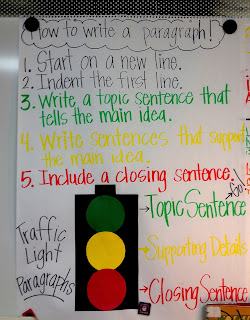 How to write a paragraph!
1. Start on a new line.
2. Indent the first line.
3. Write a topic sentence that
tells the main idea.
4. Write sentences that support
the main idea.
5. Include a closing sentence.
Go!
Traffic
Light
Paragraphs
→Topic Sentence
→Supporting Details
→Closing Sentence